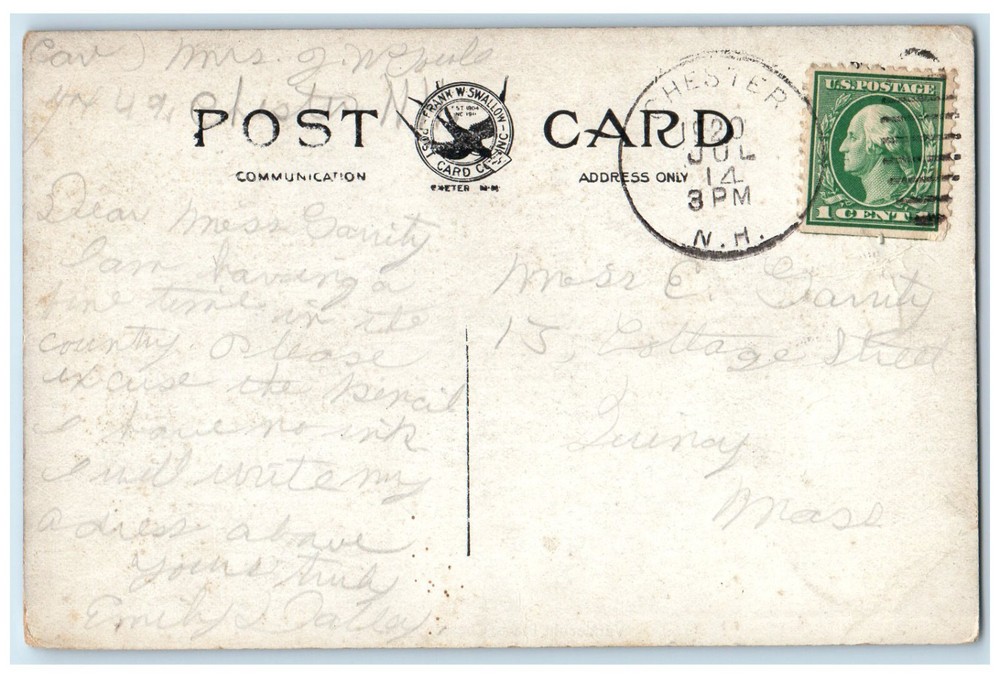 Mrs. J. W.
Chester N.H.
POST CARD
FRANK W. SWALLOW
POST CARD CO. INC.
EST 1904
INC 1911
EXETER N.H.
COMMUNICATION
ADDRESS ONLY
CHESTER
1920
JUL
14
3 PM
N. H.
U.S. POSTAGE
1 CENT
Dear Mess Garrity
I am having a
fine time in the
country. Please
excuse the pencil
I have no ink
I will write my
adress above
yours truly
Emily
Mess E. Garrity
15, Cottage Street
Quincy
Mass